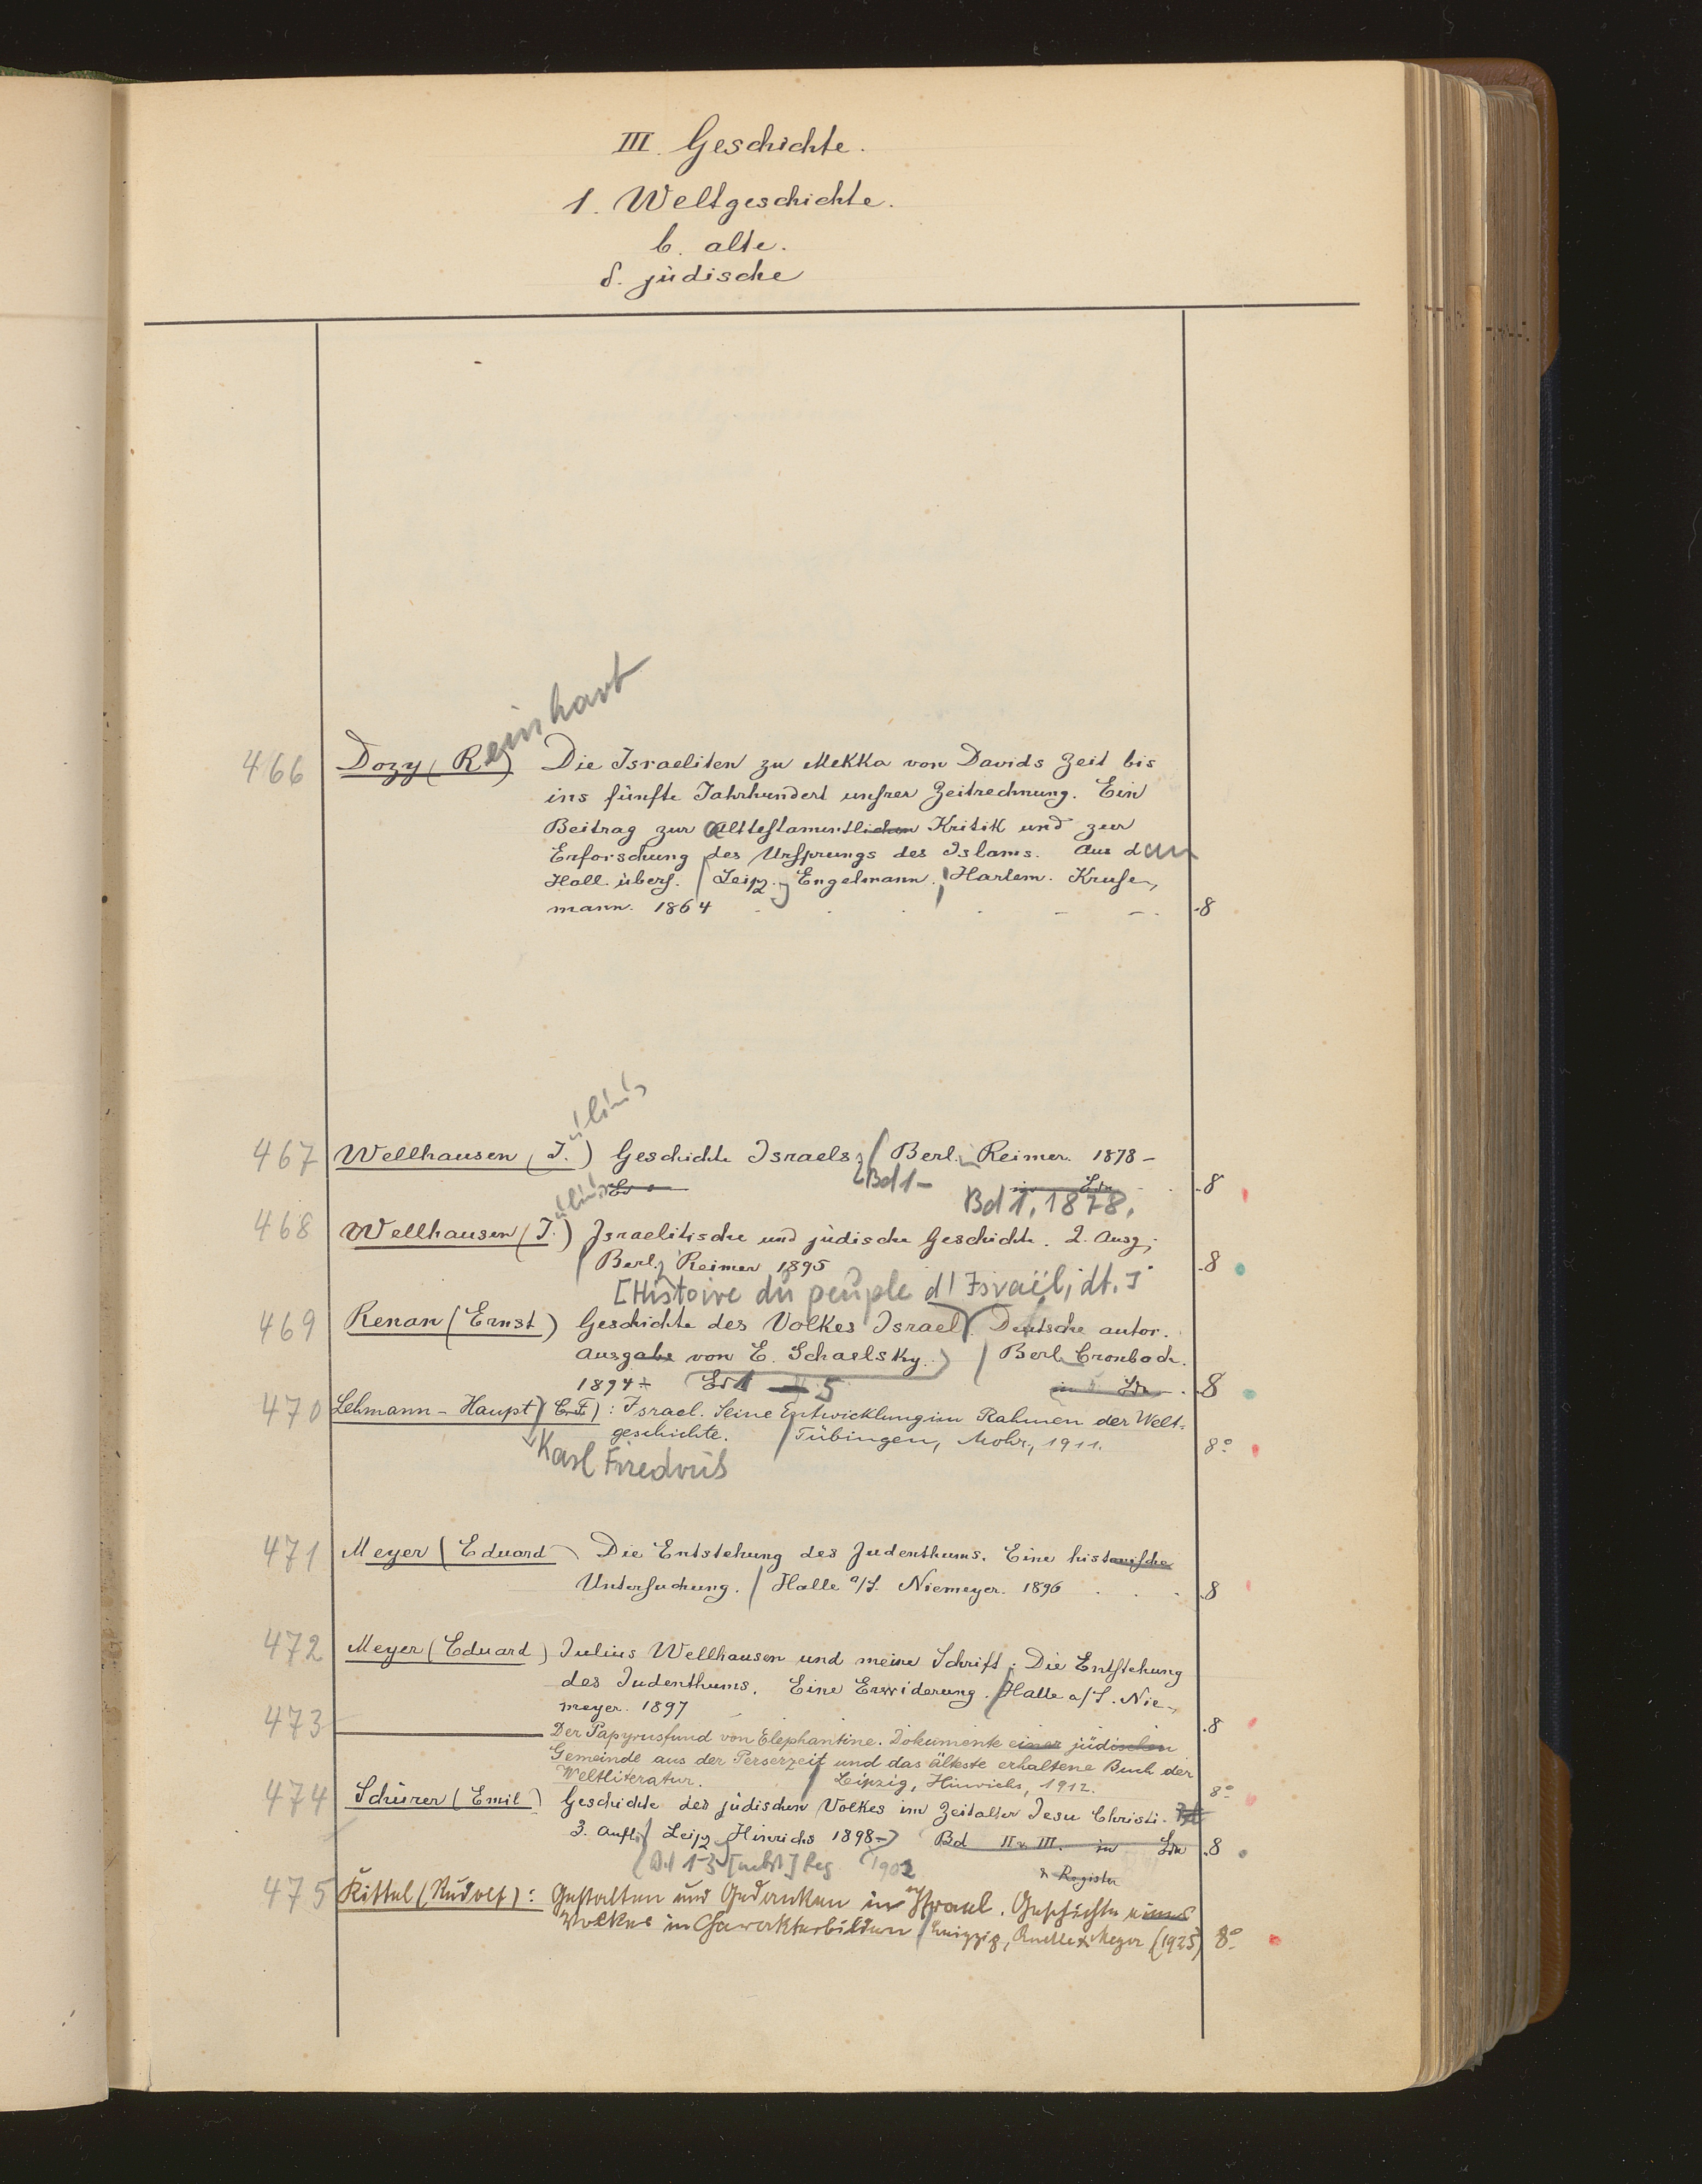 III. Geschichte.
1. Weltgeschichte.
b. alte.
δ. jüdische
einhart
466 Dozy (R) Die Israeliten zu Mekka von Davids Zeit bis
ins fünfte Jahrhundert unsrer Zeitrechnung. Ein
Beitrag zur alttestamentlichen Kritik und zur
Erforschung des Ursprungs des Islams. Aus dem
Holl. übers. Leipz., Engelmann. Harlem. Kruse-
mann. 1864 8
ulius
467 Wellhausen (J.) Geschichte Israels, Berl., Reimer. 1878-
Bd 1- 8
Bd 1, 1878.
ulius
468 Wellhausen (J.) Israelitische und jüdische Geschichte. 2. Ausg.
Berl., Reimer 1895 8
[Histoire du peuple d'Israël, dt.]
469 Renan (Ernst) Geschichte des Volkes Israel. Deutsche autor.
Ausgabe von E. Schaelsky. Berl. Cronbach.
1894 Bd 1-5 8
470 Lehmann-Haupt (C.F.): Israel. Seine Entwicklung im Rahmen der Welt-
geschichte. Tübingen, Mohr, 1911. 8°
Karl Friedrich
471 Meyer (Eduard) Die Entstehung des Judenthums. Eine historische
Untersuchung. Halle a/S. Niemeyer. 1896 8
472 Meyer (Eduard) Julius Wellhausen und meine Schrift: Die Entstehung
des Judenthums. Eine Erwiderung. Halle a/S. Nie-
meyer. 1897 8
473 Der Papyrusfund von Elephantine. Dokumente einer jüdischen
Gemeinde aus der Perserzeit und das älteste erhaltene Buch der
Weltliteratur. Leipzig, Hinrichs, 1912. 8°
474 Schürer (Emil) Geschichte des jüdischen Volkes im Zeitalter Jesu Christi.
3. Aufl. Leipz. Hinrichs 1898- Bd II u. III. in Bdn 8
Bd 1-3 [nebst] Reg 1902 & Register
475 Kittel (Rudolf): Gestalten und Gedanken in Israel. Geschichte eines
Volkes in Charakterbildern Leipzig, Quelle & Meyer (1925) 8°